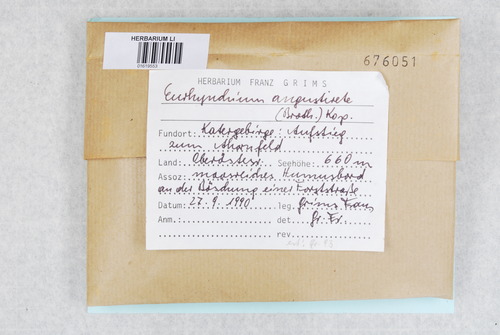 HERBARIUM LI
676051
HERBARIUM FRANZ GRIMS
Eurhynchium angustirete
(Broth.) Kop.
Fundort: Katergebirge: Aufstieg
zum
Land: Oberösterr. Seehöhe: 660 m
Assoz: moosreiches Humusbord
an der Böschung einer Forststraße
Datum: 27. 9. 1990 leg. Grims Franz
Anm.: det. Gr. Fr.
rev.